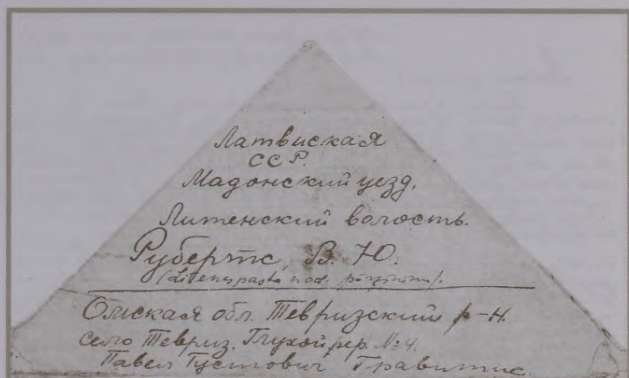 Латвиская
ССР.
Мадонский уезд.
Литенский волость.
Рубертс, В. Ю.
(Litenu pasta nod.
Омская обл. Тевризский р-н.
село Тевриз. Глухой пер. №4.
Павел Густович Гравитис.